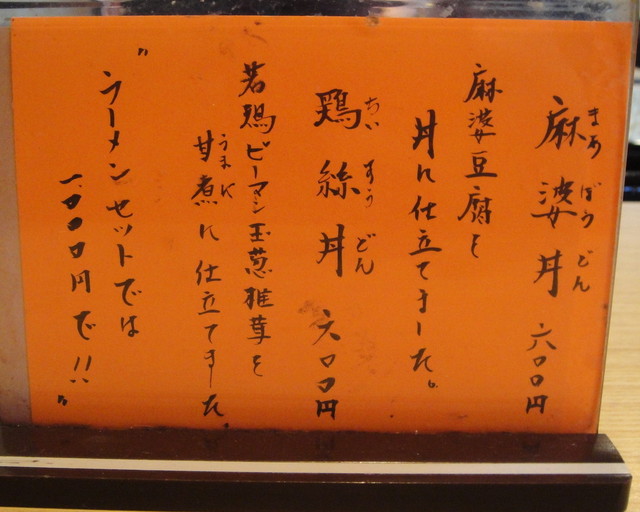 麻婆丼 六〇〇円
まあ ぼう どん
麻婆豆腐を
丼に仕立てました。
鶏絲丼 六〇〇円
ちい すう どん
若鶏ピーマン玉葱椎茸を
甘煮に仕立てました。
うまに
〝ラーメンセットでは
一、〇〇〇円で!!〟